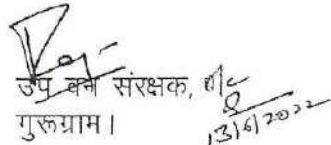 उप वन संरक्षक, o/c
गुरूग्राम।
13/6/2022